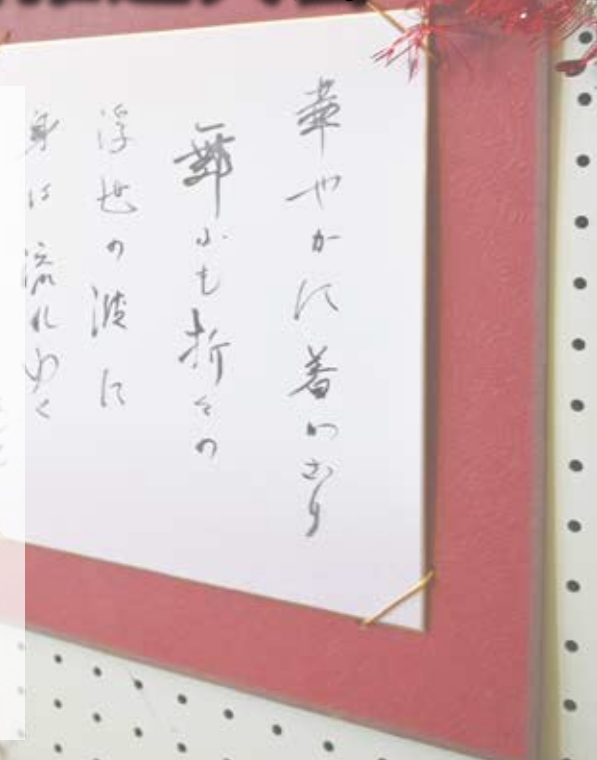 華やかに着かざり
舞ふも折々の
浮世の波に
身は流れゆく